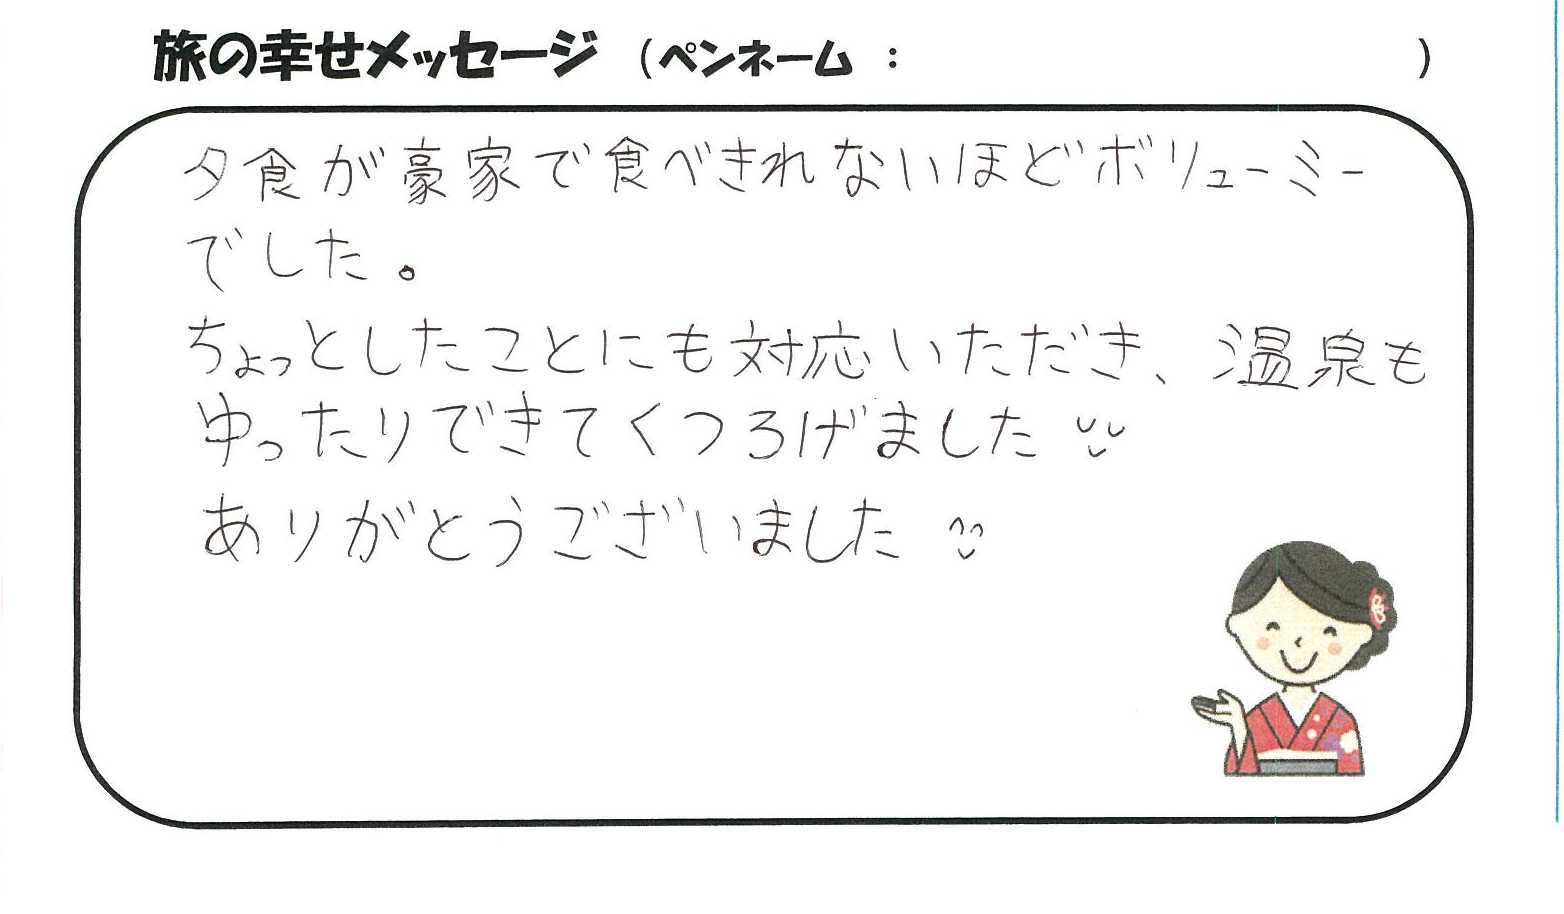 旅の幸せメッセージ (ペンネーム : )
夕食が豪家で食べきれないほどボリューミー
でした。
ちょっとしたことにも対応いただき、温泉も
ゆったりできてくつろげました
ありがとうございました